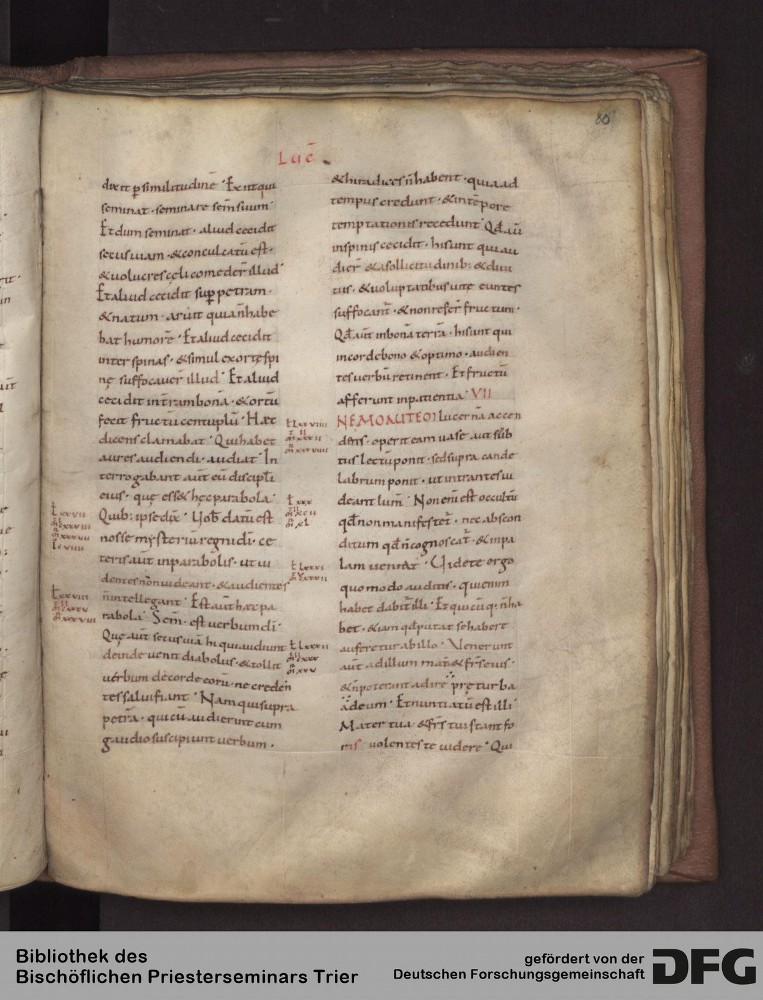 80
Luc̄
dixit p similitudinē · Exiit qui
seminat · seminare semen suum ·
Et dum seminat · aliud cecidit
secus uiam · & conculcatū est ·
& uolucres cęli comeder̄ illud ·
Et aliud cecidit supra petram ·
& natum · aruit quia n̄ habe
bat humorē · Et aliud cecidit
inter spinas · & simul exortę spi
nę suffocauer̄ illud · Et aliud
cecidit in terram bonā · & ortū
fecit fructū centuplū · Hæc
dicens clamabat · Qui habet
aures audiendi · audiat · In
terrogabant aut̄ eū discipli
eius · quę ess& hęc parabola ·
Quib; ipse dix̄ · Uob̄ datū est
nosse mysteriū regni dī · ce
teris aut̄ in parabolis · ut ui
dentes non uideant · & audientes
n̄ intellegant · Est aut̄ hæc pa
rabola · Sem̄ · est uerbum dī ·
Quę aut̄ secus uiā hi qui audiunt
deinde uenit diabolus · & tollit
uerbum de corde eorū · ne creden
tes salui fiant · Nam qui supra
petrā · qui cū audierint cum
gaudio suscipiunt uerbum ·
& hi radices n̄ habent · quia ad
tempus credunt · & in tēpore
temptationis recedunt · Qd̄ aū
in spinis cecidit · hi sunt qui au
dier̄ · & a sollicitudinib; & diui
tiis · & uoluptatibus uitę euntes
suffocant̄ · & non refer̄ fructum ·
Qd̄ aut̄ in bonā terrā · hi sunt qui
in corde bono & optimo · audien
tes uerbū retinent · Et fructū
afferunt in patientia · VII
NEMO AUTEM lucernā accen
dens · operit eam uase aut sub
tus lectū ponit · sed supra cande
labrum ponit · ut intrantes ui
deant lum̄ · Non enī est occultū
qd̄ non manifestet̄ · nec abscon
ditum qd̄ n̄ cognoscat̄ · & in pa
lam ueniat · Uidete ergo
quomodo auditis · qui enim
habet dabit̄ illi · Et quicūq; n̄ ha
bet · & iam qd̄ putat se habere
auferetur ab illo · Uenerunt
aut̄ ad illum mat̄ & frs̄ eius ·
& n̄ poterant adire prę turba
ad eum · Et nuntiatū est illi ·
Mater tua · & frs̄ tui stant fo
ris uolentes te uidere · Qui
Bibliothek des
Bischöflichen Priesterseminars Trier
gefördert von der
Deutschen Forschungsgemeinschaft
DFG